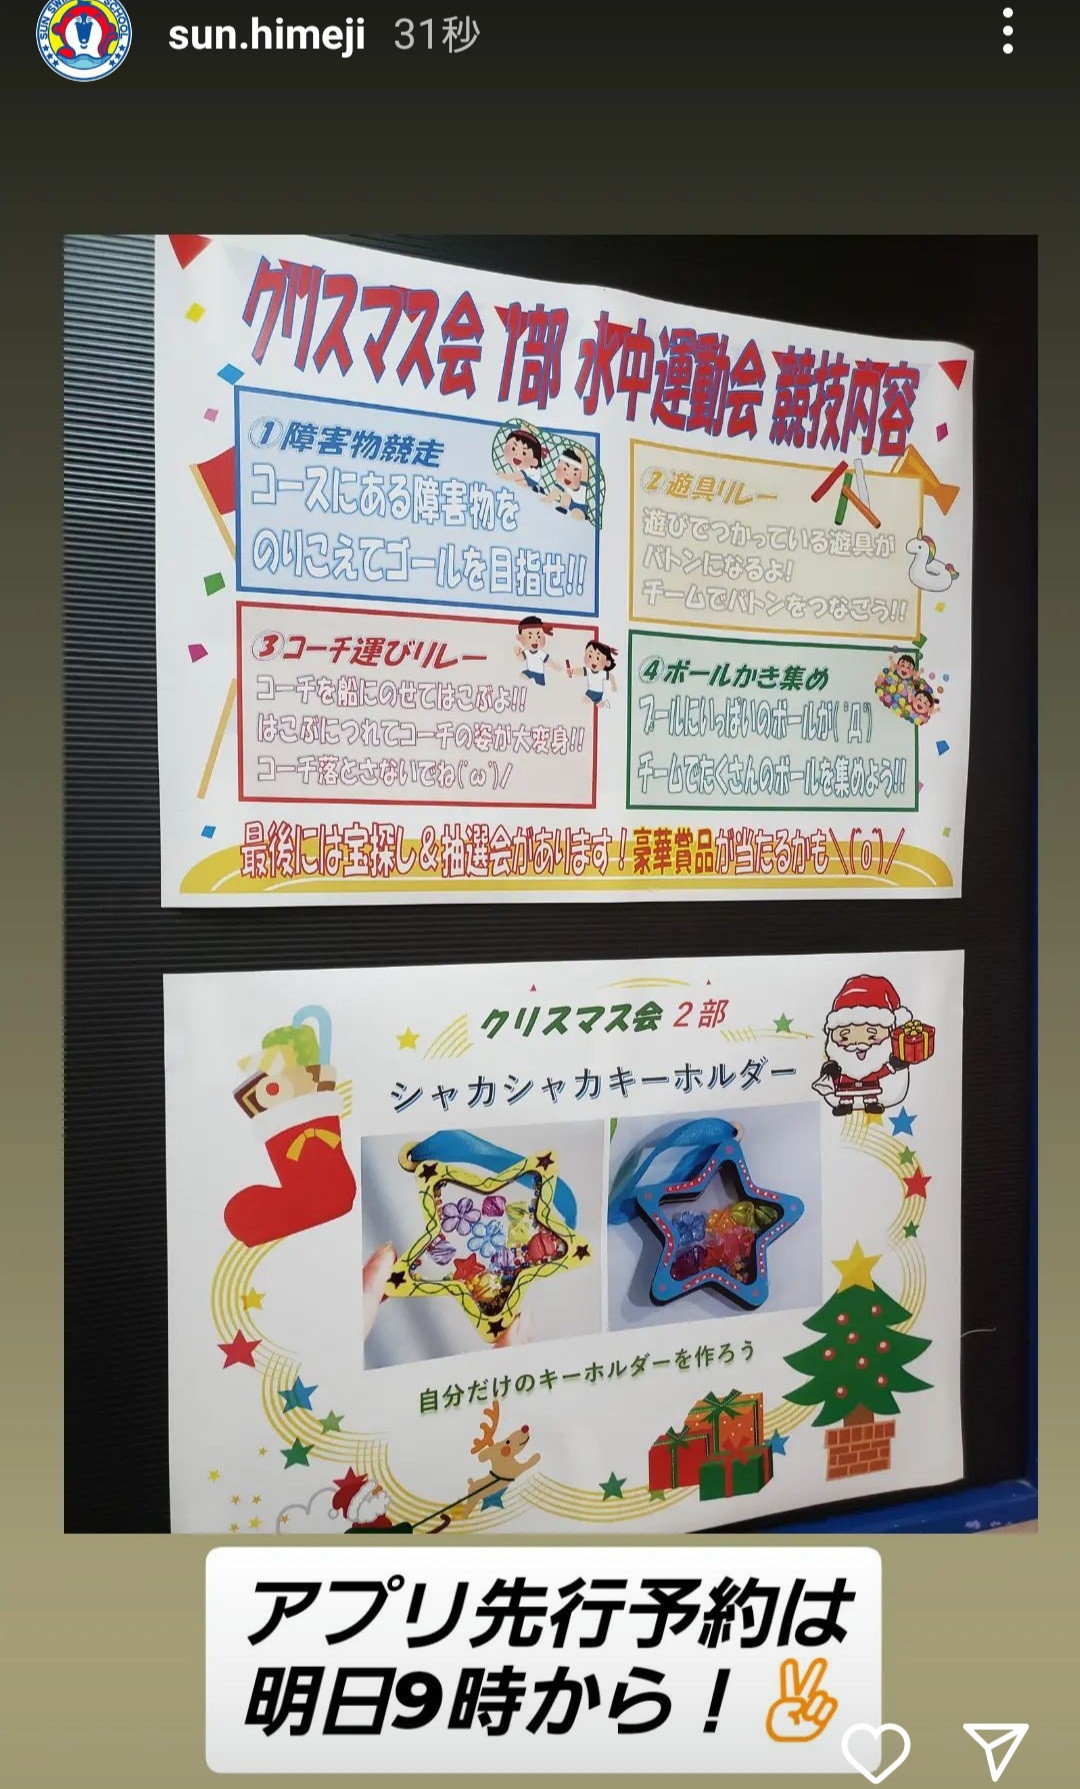 SUN SWIMMING SCHOOL
sun.himeji 31秒
クリスマス会 1部 水中運動会 競技内容
①障害物競走
コースにある障害物を
のりこえてゴールを目指せ!!
②遊具リレー
遊びでつかっている遊具が
バトンになるよ!
チームでバトンをつなごう!!
③コーチ運びリレー
コーチを船にのせてはこぶよ!!
はこぶにつれてコーチの姿が大変身!!
コーチ落とさないでね(´ω`)/
④ボールかき集め
プールにいっぱいのボールが(ﾟДﾟ)
チームでたくさんのボールを集めよう!!
最後には宝探し&抽選会があります!豪華賞品が当たるかも\(^o^)/
クリスマス会 2部
シャカシャカキーホルダー
自分だけのキーホルダーを作ろう
アプリ先行予約は
明日9時から!✌